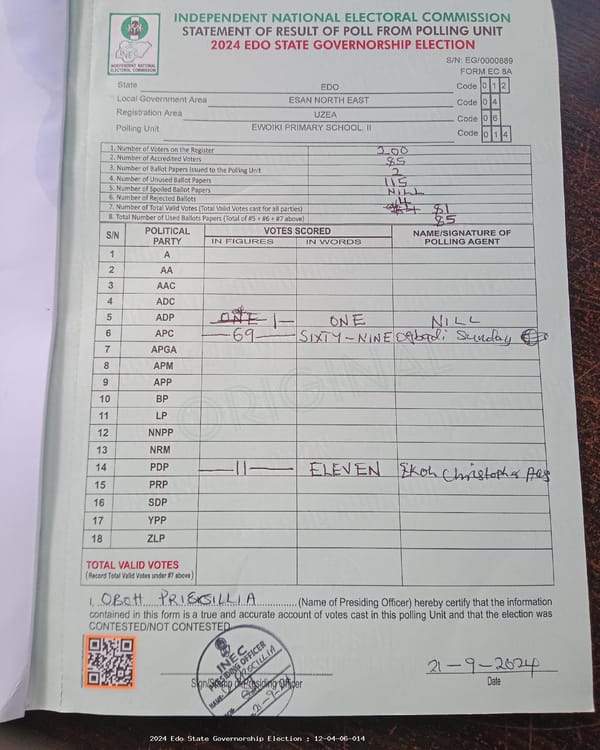 INDEPENDENT NATIONAL ELECTORAL COMMISSION
STATEMENT OF RESULT OF POLL FROM POLLING UNIT
2024 EDO STATE GOVERNORSHIP ELECTION
INEC
INDEPENDENT NATIONAL
ELECTORAL COMMISSION
S/N: EG/0000889
FORM EC 8A
State EDO Code 0 1 2
Local Government Area ESAN NORTH EAST Code 0 4
Registration Area UZEA Code 0 6
Polling Unit EWOIKI PRIMARY SCHOOL II Code 0 1 4
1. Number of Voters on the Register 200
2. Number of Accredited Voters 85
3. Number of Ballot Papers Issued to the Polling Unit 2
4. Number of Unused Ballot Papers 115
5. Number of Spoiled Ballot Papers NILL
6. Number of Rejected Ballots 4
7. Number of Total Valid Votes (Total Valid Votes cast for all parties) 81
8. Total Number of Used Ballots Papers (Total of #5 + #6 + #7 above) 85
S/N POLITICAL PARTY VOTES SCORED NAME/SIGNATURE OF POLLING AGENT
IN FIGURES IN WORDS
1 A
2 AA
3 AAC
4 ADC
5 ADP ONE 1 ONE NILL
6 APC 69 SIXTY-NINE Ogbadi Sunday
7 APGA
8 APM
9 APP
10 BP
11 LP
12 NNPP
13 NRM
14 PDP 11 ELEVEN Ekoh Christopher
15 PRP
16 SDP
17 YPP
18 ZLP
ORIGINAL
TOTAL VALID VOTES
(Record Total Valid Votes under #7 above)
I, OBOH PRIEKSILLIA (Name of Presiding Officer) hereby certify that the information
contained in this form is a true and accurate account of votes cast in this polling Unit and that the election was
CONTESTED/NOT CONTESTED
INEC
PRESIDING OFFICER
Sign/Stamp of Presiding Officer
21-9-2024
Date
2024 Edo State Governorship Election : 12-04-06-014